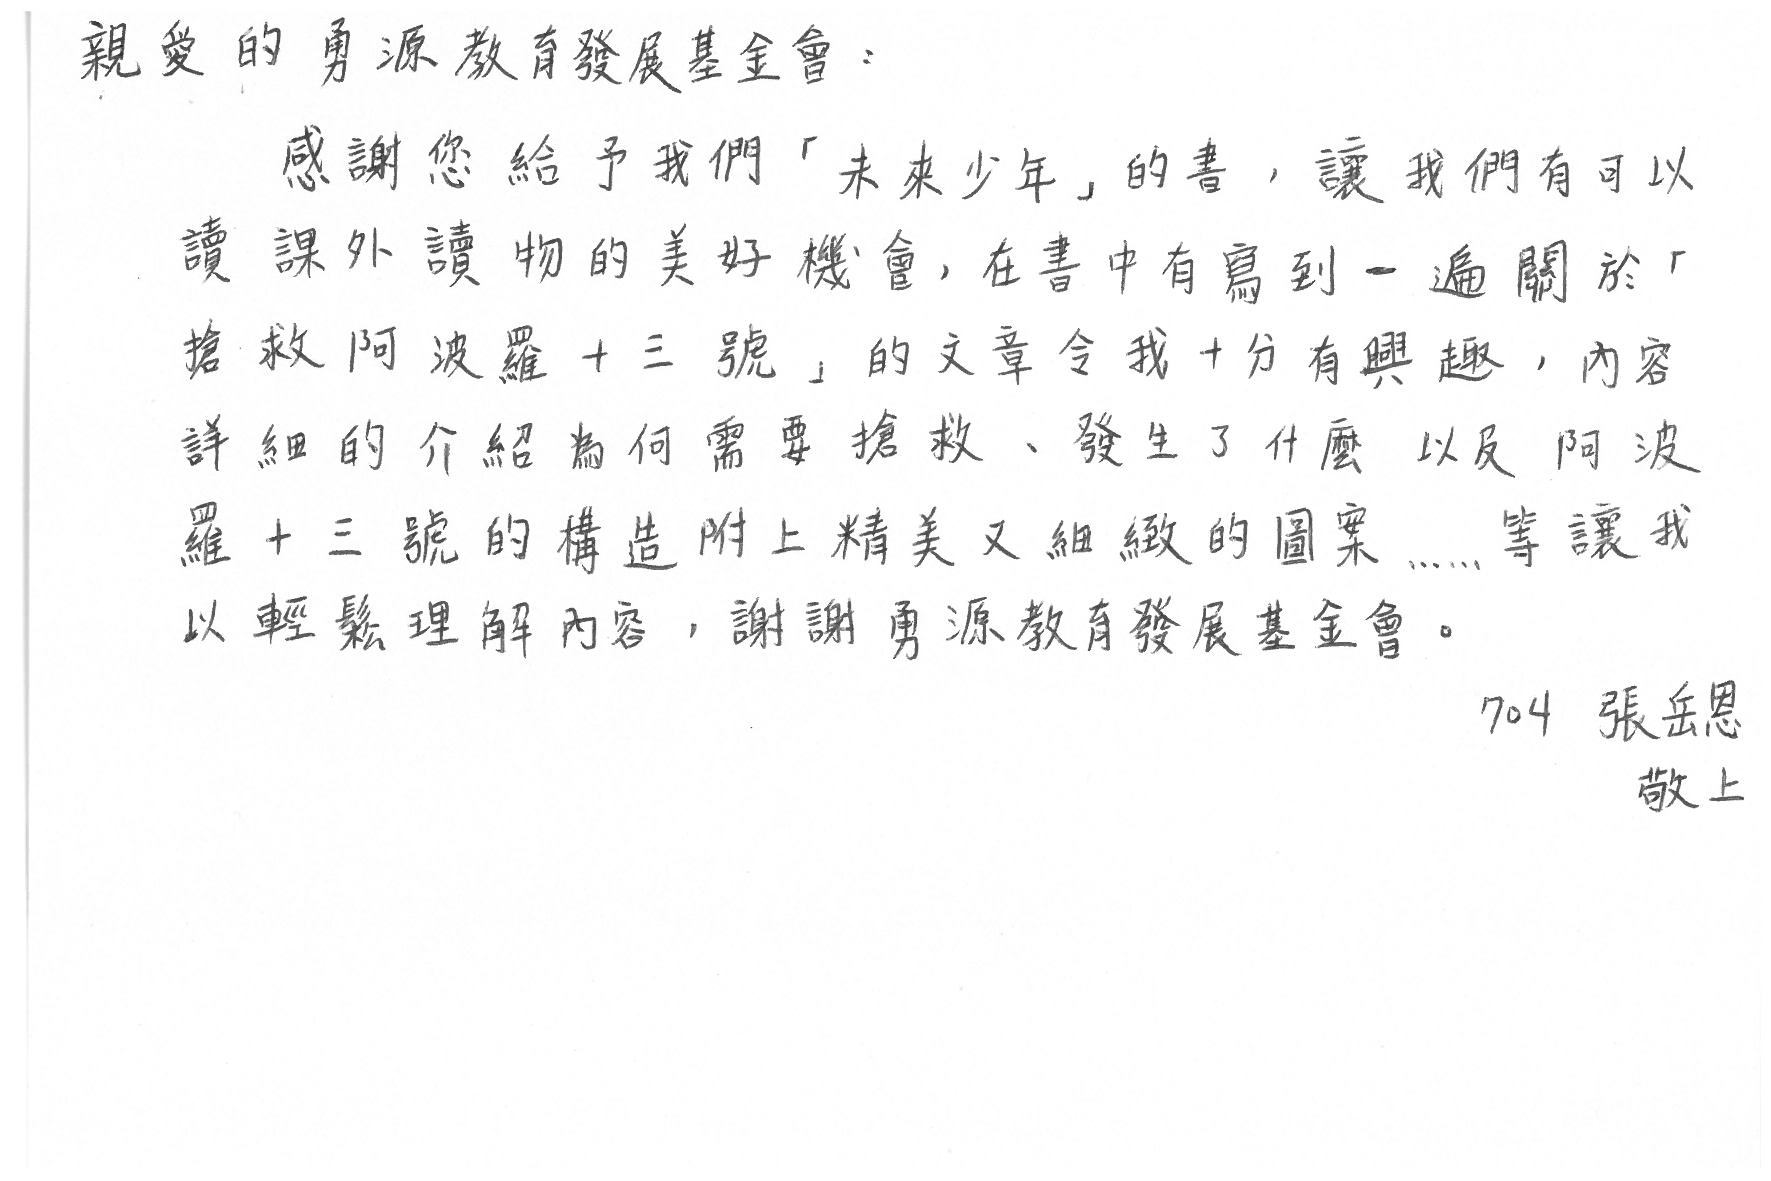 親愛的勇源教育發展基金會：
感謝您給予我們「未來少年」的書，讓我們有可以
讀課外讀物的美好機會，在書中有寫到一遍關於「
搶救阿波羅十三號」的文章令我十分有興趣，內容
詳細的介紹為何需要搶救、發生了什麼以及阿波
羅十三號的構造附上精美又細緻的圖案……等讓我
以輕鬆理解內容，謝謝勇源教育發展基金會。
704 張岳恩
敬上